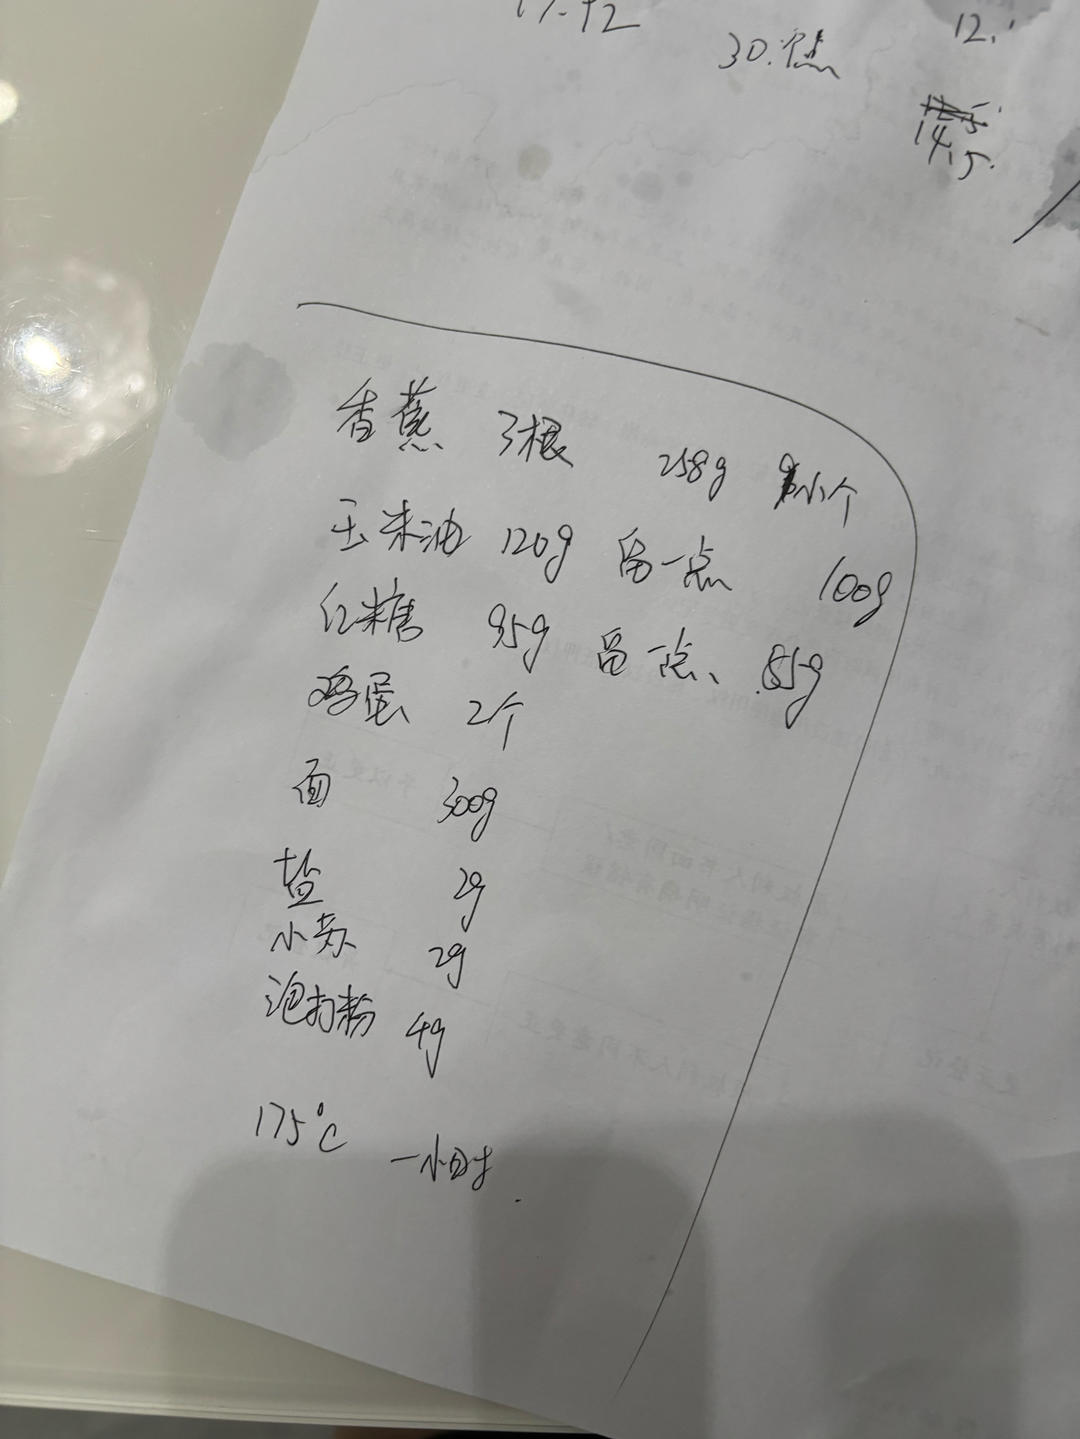 30.
12.
14.5
香蕉 3根 258g 小个
玉米油 120g 留一点 100g
红糖 95g 留一点、 85g
鸡蛋 2个
面 300g
盐 2g
小苏 2g
泡打粉 4g
175°C 一小时.